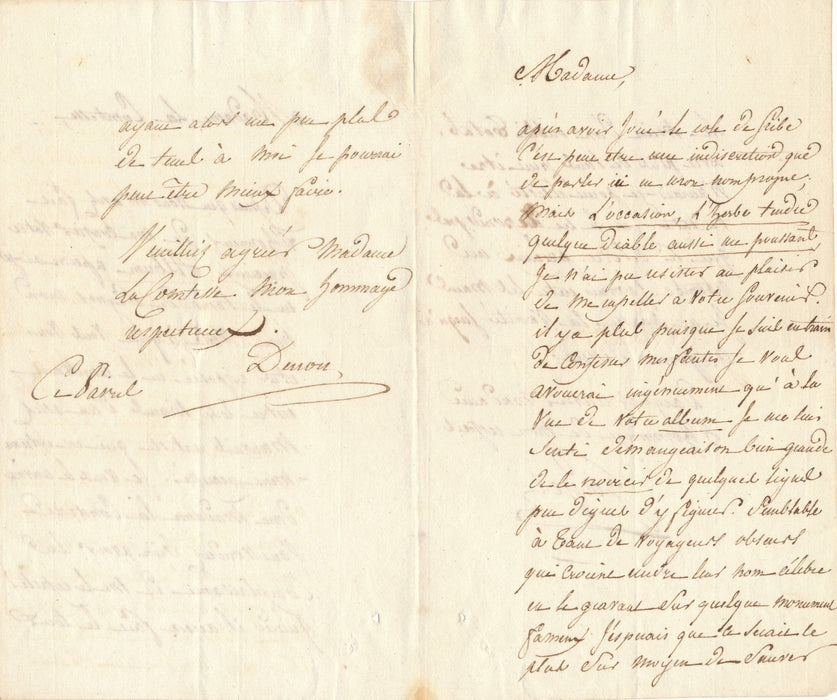 Madame,
après avoir joué le role de scribe
c'est peut etre une indiscretion que
de parler ici en mon nom propre,
mais L'occasion, L'herbe tendre
quelque diable aussi me poussant,
Je n'ai pu résister au plaisir
de me rapeller à votre souvenir.
il y a plus puisque je suis en train
de confesser mes fautes je vous
avouerai ingénument qu'à la
vue de votre album je me suis
senti démangeaison bien grande
de le noircir de quelques lignes
peu dignes d'y figurer. semblable
à tant de voyageurs obscurs
qui croient rendre leur nom célèbre
en le gravant sur quelque monument
fameux j'espérais que ce serait le
plus sur moyen de sauver
ayant alors un peu plus
de tems à moi je pourrai
peut être mieux faire.
Veuilliez agréer Madame
La Comtesse mon hommage
respectueux.
Denon
Ce 8 avril